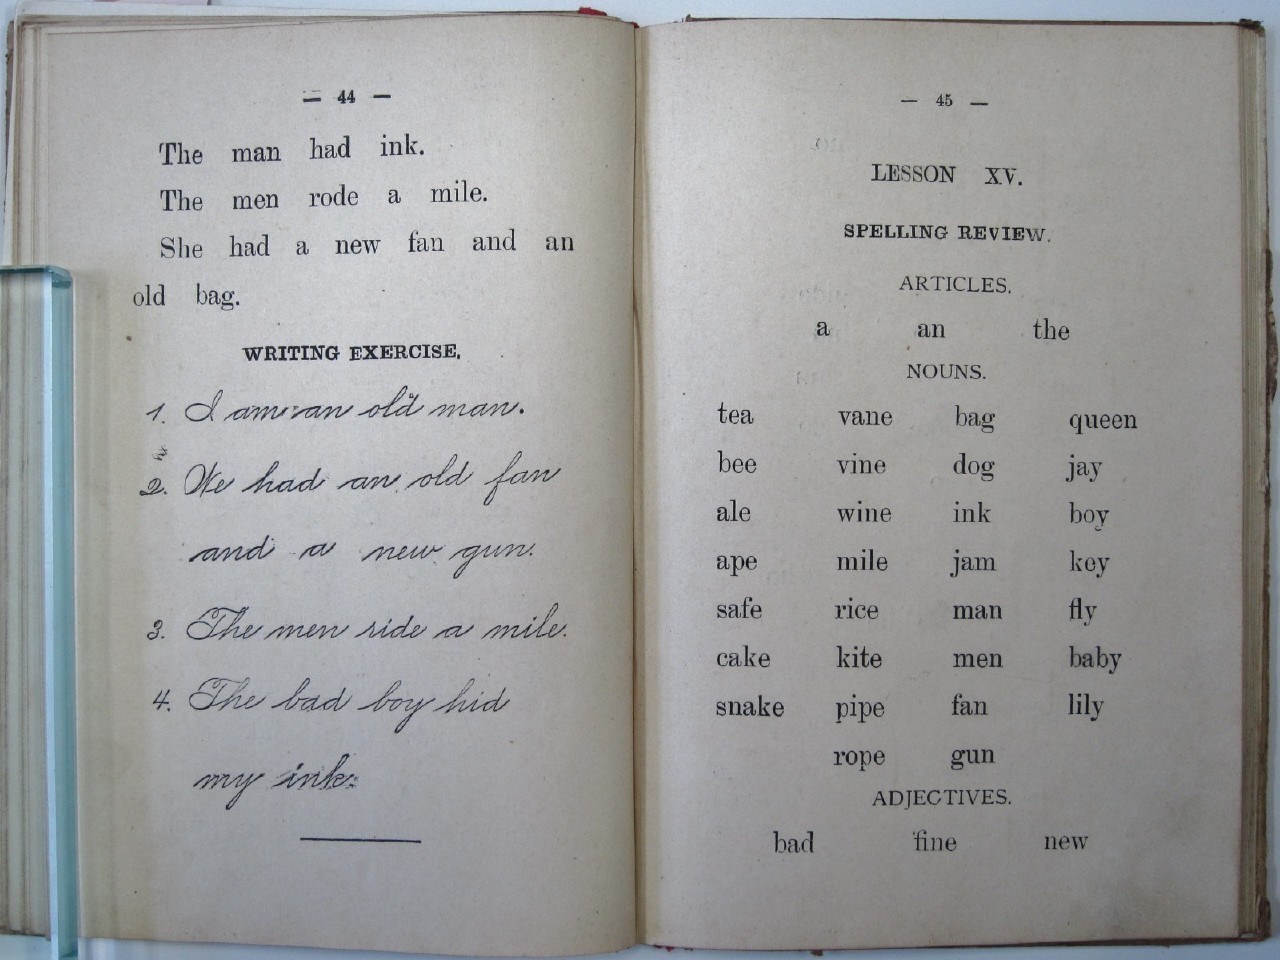 — 44 —
The man had ink.
The men rode a mile.
She had a new fan and an
old bag.
WRITING EXERCISE.
1. I am an old man.
2. We had an old fan
and a new gun.
3. The men ride a mile.
4. The bad boy hid
my ink.
— 45 —
LESSON XV.
SPELLING REVIEW.
ARTICLES.
a an the
NOUNS.
tea vane bag queen
bee vine dog jay
ale wine ink boy
ape mile jam key
safe rice man fly
cake kite men baby
snake pipe fan lily
rope gun
ADJECTIVES.
bad fine new